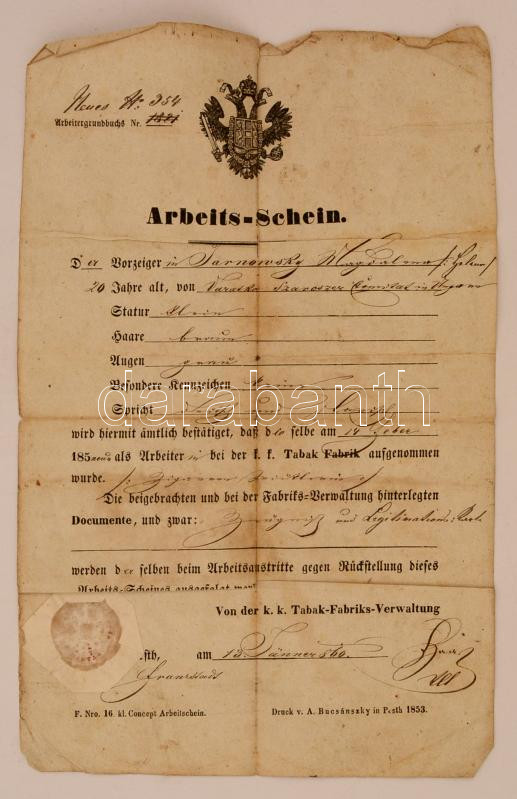 Neues No 354
Arbeitergrundbuchs Nr.
Arbeits-Schein.
Der Vorzeiger in Jarnowsky Magdalena
20 Jahre alt, von Szaroszer Comitat in Ungarn
Statur klein
Haare braun
Augen grau
Besondere Kennzeichen keine
Spricht
wird hiermit ämtlich bestätiget, daß die selbe am 14
185neun als Arbeiter in bei der k. k. Tabak Fabrik aufgenommen
wurde.
Die beigebrachten und bei der Fabriks-Verwaltung hinterlegten
Documente, und zwar: Zeugniß und Legitimations-Karte
werden der selben beim Arbeitsaustritte gegen Rückstellung dieses
Arbeits-Scheines ausgefolgt
Von der k. k. Tabak-Fabriks-Verwaltung
sth, am 13. Jänner 860.
Franzstadt
F. Nro. 16. kl. Concept Arbeitschein.
Druck v. A. Bucsánszky in Pesth 1853.
darabanth